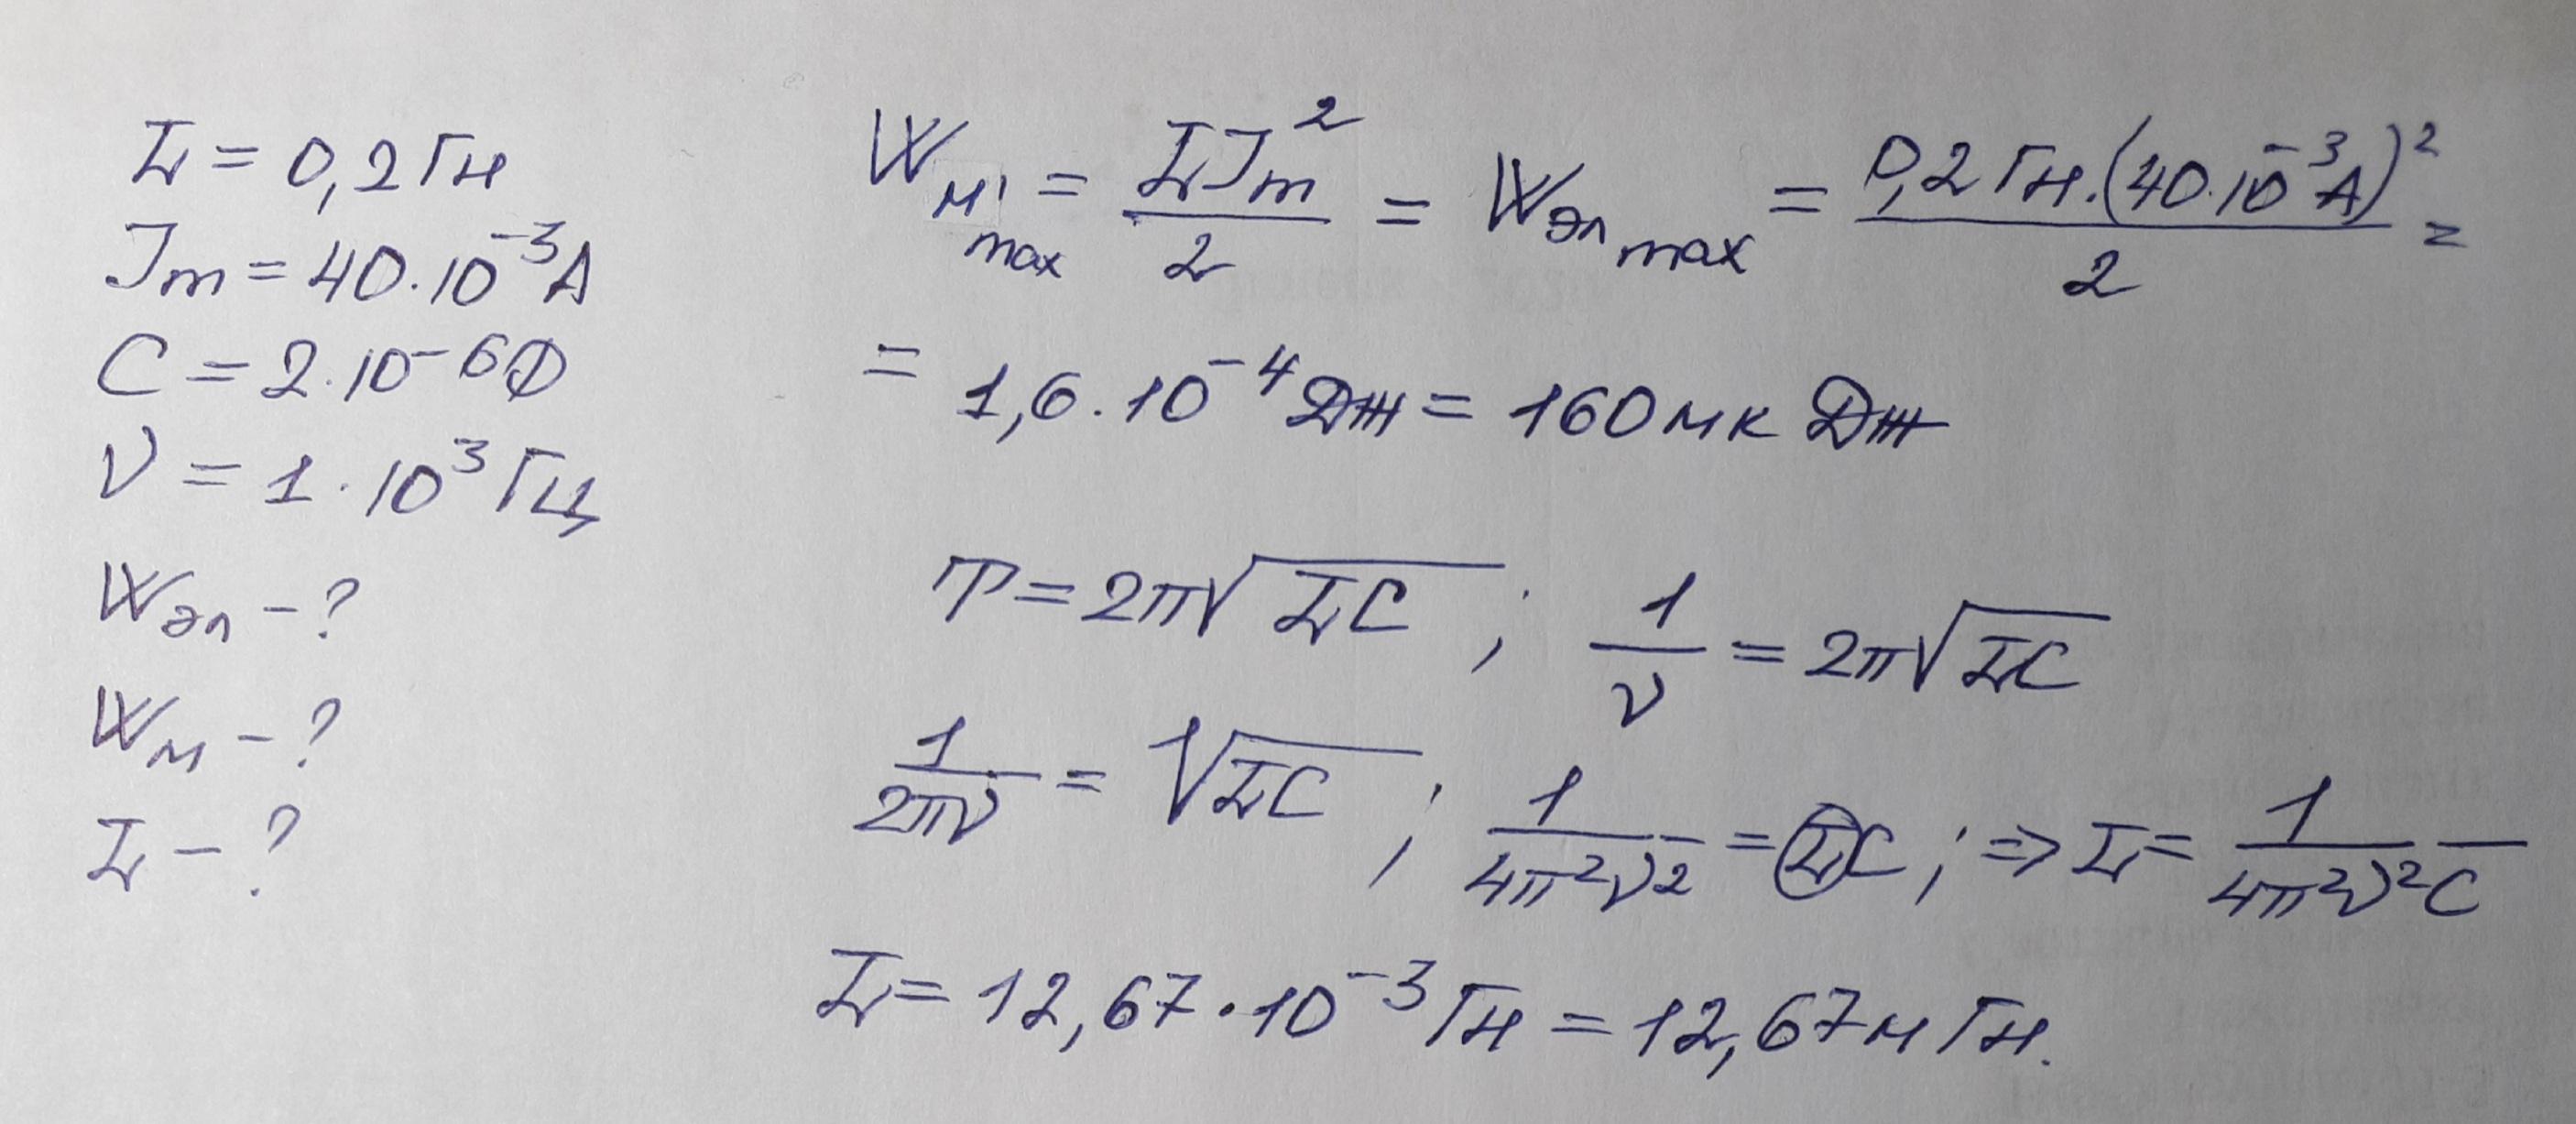 L = 0,2 Гн
Jm = 40·10⁻³ А
C = 2·10⁻⁶ Ф
ν = 1·10³ Гц
Wэл – ?
Wм – ?
L – ?
Wм max = LJm²/2 = Wэл max = 0,2 Гн·(40·10⁻³А)²/2 =
= 1,6·10⁻⁴ Дж = 160 мк Дж
T = 2π√LC ; 1/ν = 2π√LC
1/2πν = √LC ; 1/4π²ν² = LC ; => L = 1/4π²ν²C
L = 12,67·10⁻³ Гн = 12,67 мГн.